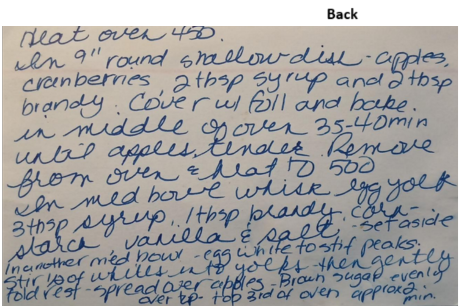 Back
Heat oven 450.
In 9" round shallow dish - apples,
cranberries 2 tbsp syrup and 2 tbsp
brandy. Cover w/ foil and bake.
in middle of oven 35-40 min
until apples, tender. Remove
from oven & heat to 500
In med bowl whisk egg yolk
3 tbsp syrup. 1 tbsp brandy, corn-
starch vanilla & salt - set aside
In another med bowl - egg white to stif peaks.
Stir 1/3 of whites into yolks then gently
fold rest - spread over apples - Brown sugar evenly
over top - top 3rd of oven approx
min.